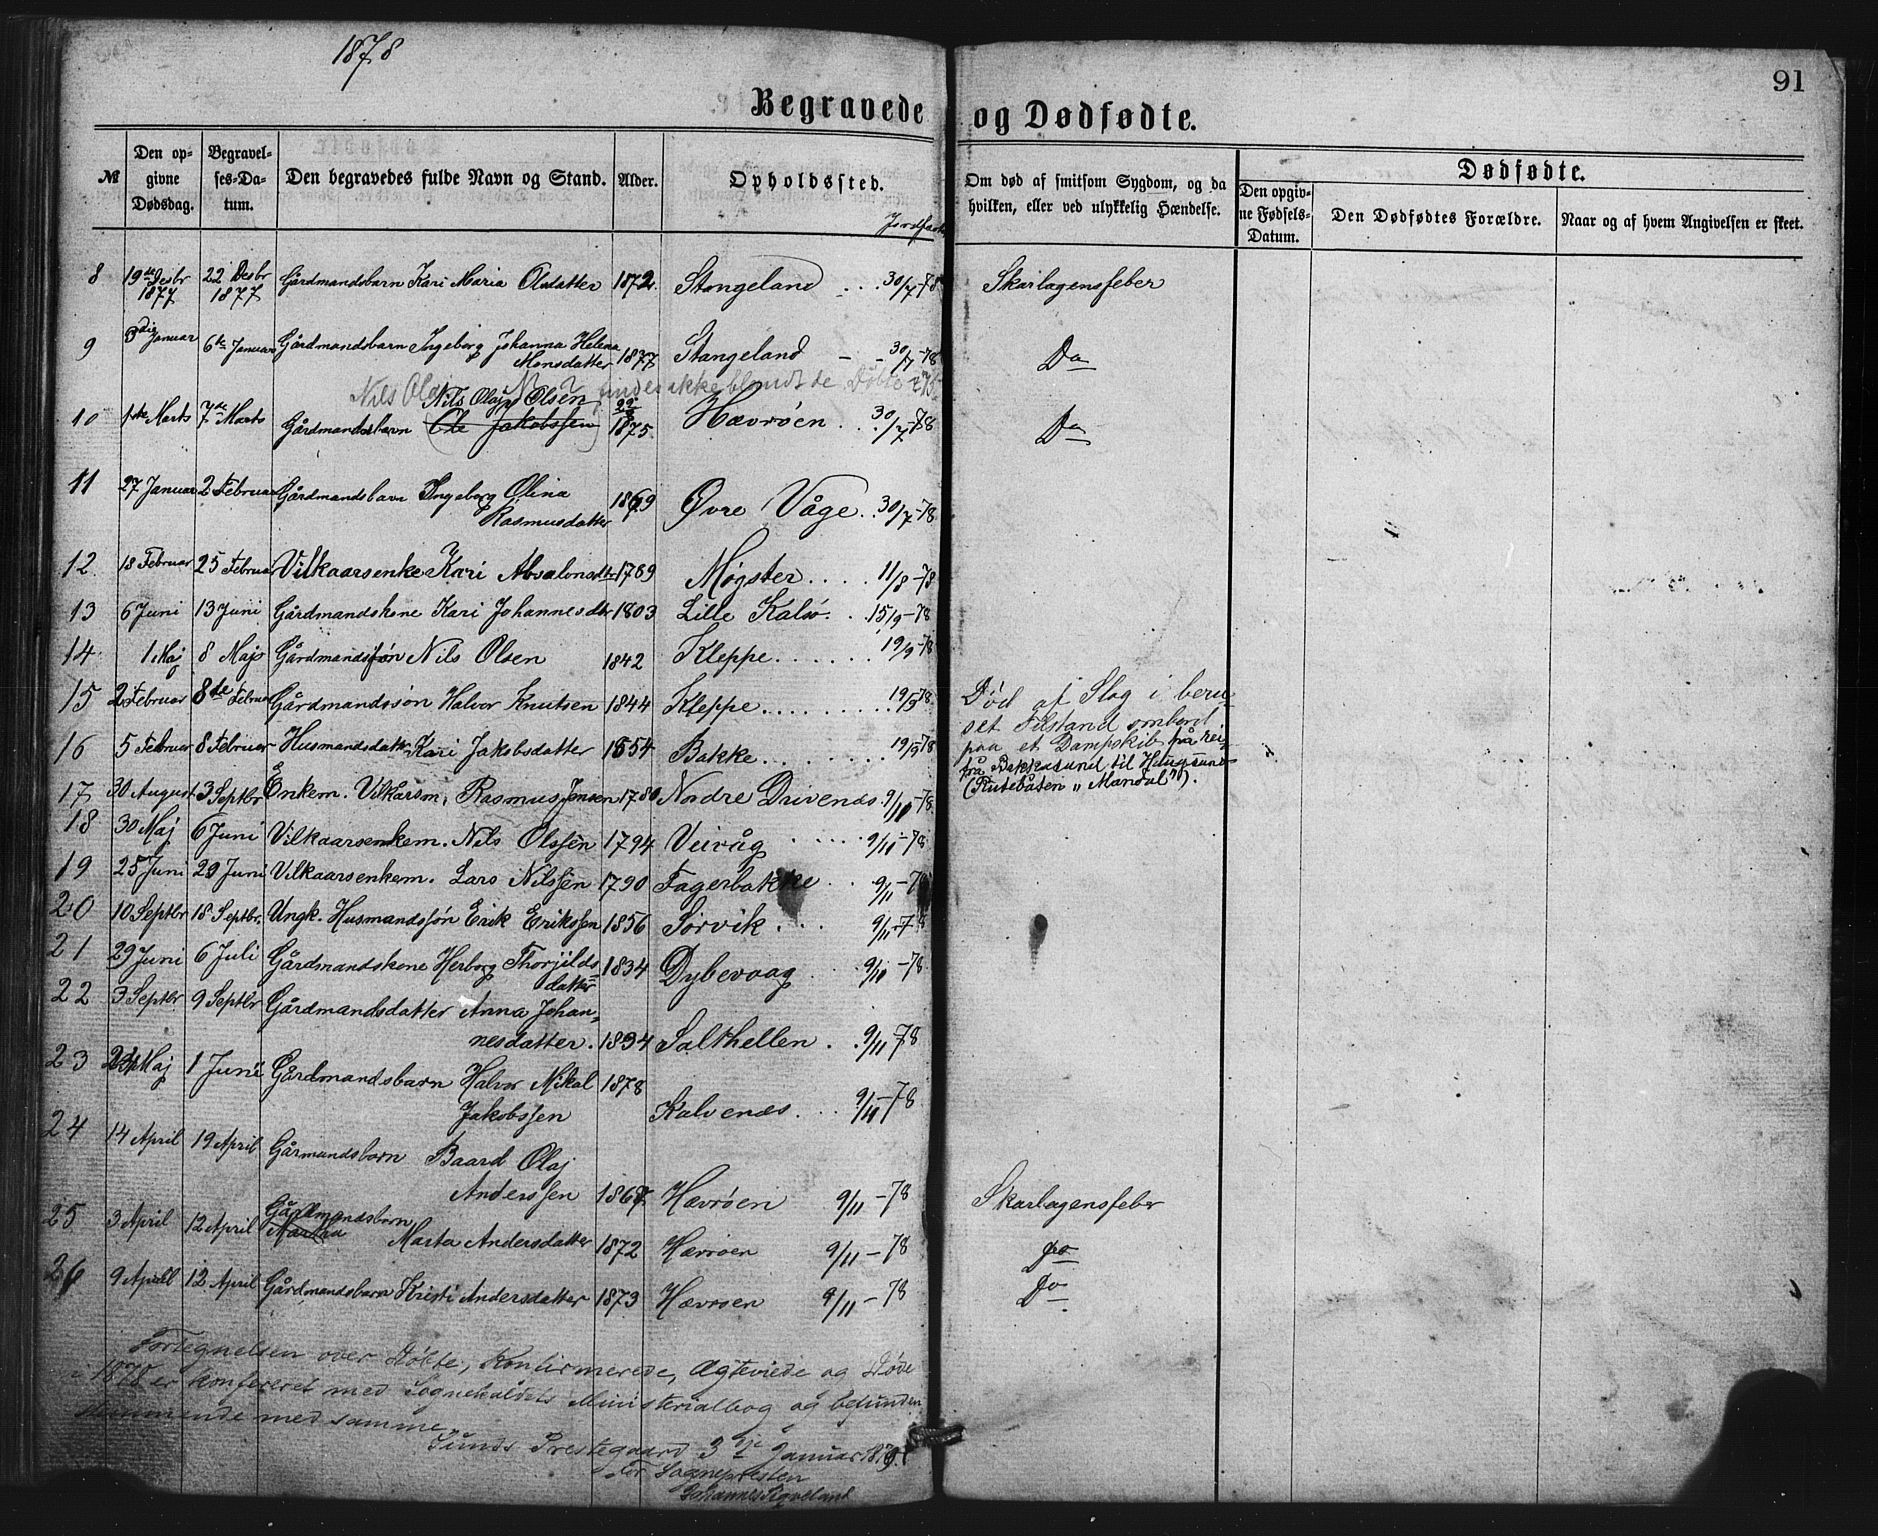 1878
91
Begravede og Dødfødte.
№ Den opgivne Dødsdag. Begravelses-Datum. Den begravedes fulde Navn og Stand. Alder. Opholdssted. Om død af smitsom Sygdom, og da hvilken, eller ved ulykkelig Hændelse. Dødfødte.
Den opgivne Fødsels-Datum. Den Dødfødtes Forældre. Naar og af hvem Angivelsen er skeet.
8 19de Desbr 1877 22 Desbr 1877 Gårdmandsbarn Kari Maria Olsdatter 1872 Stangeland 30/7-78 Skarlagensfeber
9 3die Januar 6te Januar Gårdmandsbarn Ingeborg Johanna Helena
Monsdatter 1877 Stangeland 30/7-78 Do
Nils Olaj findes ikke blandt de Døbte
Nils Olaj Olsen
10 1ste Marts 7de Marts Gårdmandsbarn Ole Jakobssen 1875. Hævrøen 30/7-78 Do
11 27 Januar 2 Februar Gårdmandsbarn Ingeborg Olina
Rasmusdatter 1869 Øvre Våge 30/7-78
12 18 Februar 25 Februar Vilkaarsenke Kari Absalonsdtr 1789 Møgster 11/8-78
13 6 Juni 13 Juni Gårdmandskone Kari Johannesdtr 1803 Lille Kalsø 15/9-78
14 1 Maj 8 Maj Gårdmandssøn Nils Olsen 1842 Kleppe 19/9-78
15 2 Februar 8de Februar Gårdmandssøn Halvor Knutsen 1844 Kleppe 19/9-78 Død af Slag i beru-
set Tilstand ombord
paa et Dampskib på rei-
fra Bekkasund til
(Rutebåten "Mandal").
16 5 Februar 8 Februar Husmandsdatter Kari Jakobsdatter 1854 Bakke 19/9-78
17 30 August 3 Septbr Enkem. Vilkårsm. Rasmus Jensen 1780 Nordre Drivenes 9/10-78
18 30 Maj 6 Juni Vilkaarsenkem. Nils Olssen 1794 Veivåg 9/11-78
19 25 Juni 29 Juni Vilkaarsenkem. Lars Nilssen 1790 Fagerbakke 9/11-78
20 10 Septbr 18 Septbr. Ungk. Husmandssøn Erik Erikssen 1856 Sørvik 9/11-78
21 29 Juni 6 Juli Gårdmandskone Herborg Thorjilds-
datter 1834 Dybevaag 9/11-78
22 3 Septbr 9 Septbr Gårdmandsdatter Anna Johan-
nesdatter. 1834 Salthellen 9/11-78
23 24 Maj 1 Juni Gårdmandsbarn Halvor Mikal 1878
Jakobssen Kalvenes 9/11-78
24 14 April 19 April Gårmandsbarn Baard Olaj
Anderssen 1867 Hævrøen 9/11-78 Skarlagensfeber
25 3 April 12 April Gårdmandsbarn Marta Andersdatter 1872 Hævrøen 9/11-78 Do
26 9 April 12 April Gårdmandsbarn Kristi Andersdatter 1873 Hævrøen 9/11-78 Do
Fortegnelsen over Døbte, Konfirmerede, Ægteviede og Døde
i 1878 er konfereret med Sognekaldets Ministerialbog og befunden
stemmende med samme.
Sunds Prestegaard 3dje Januar 1879.
For Sognepresten
Johannes Tigveland